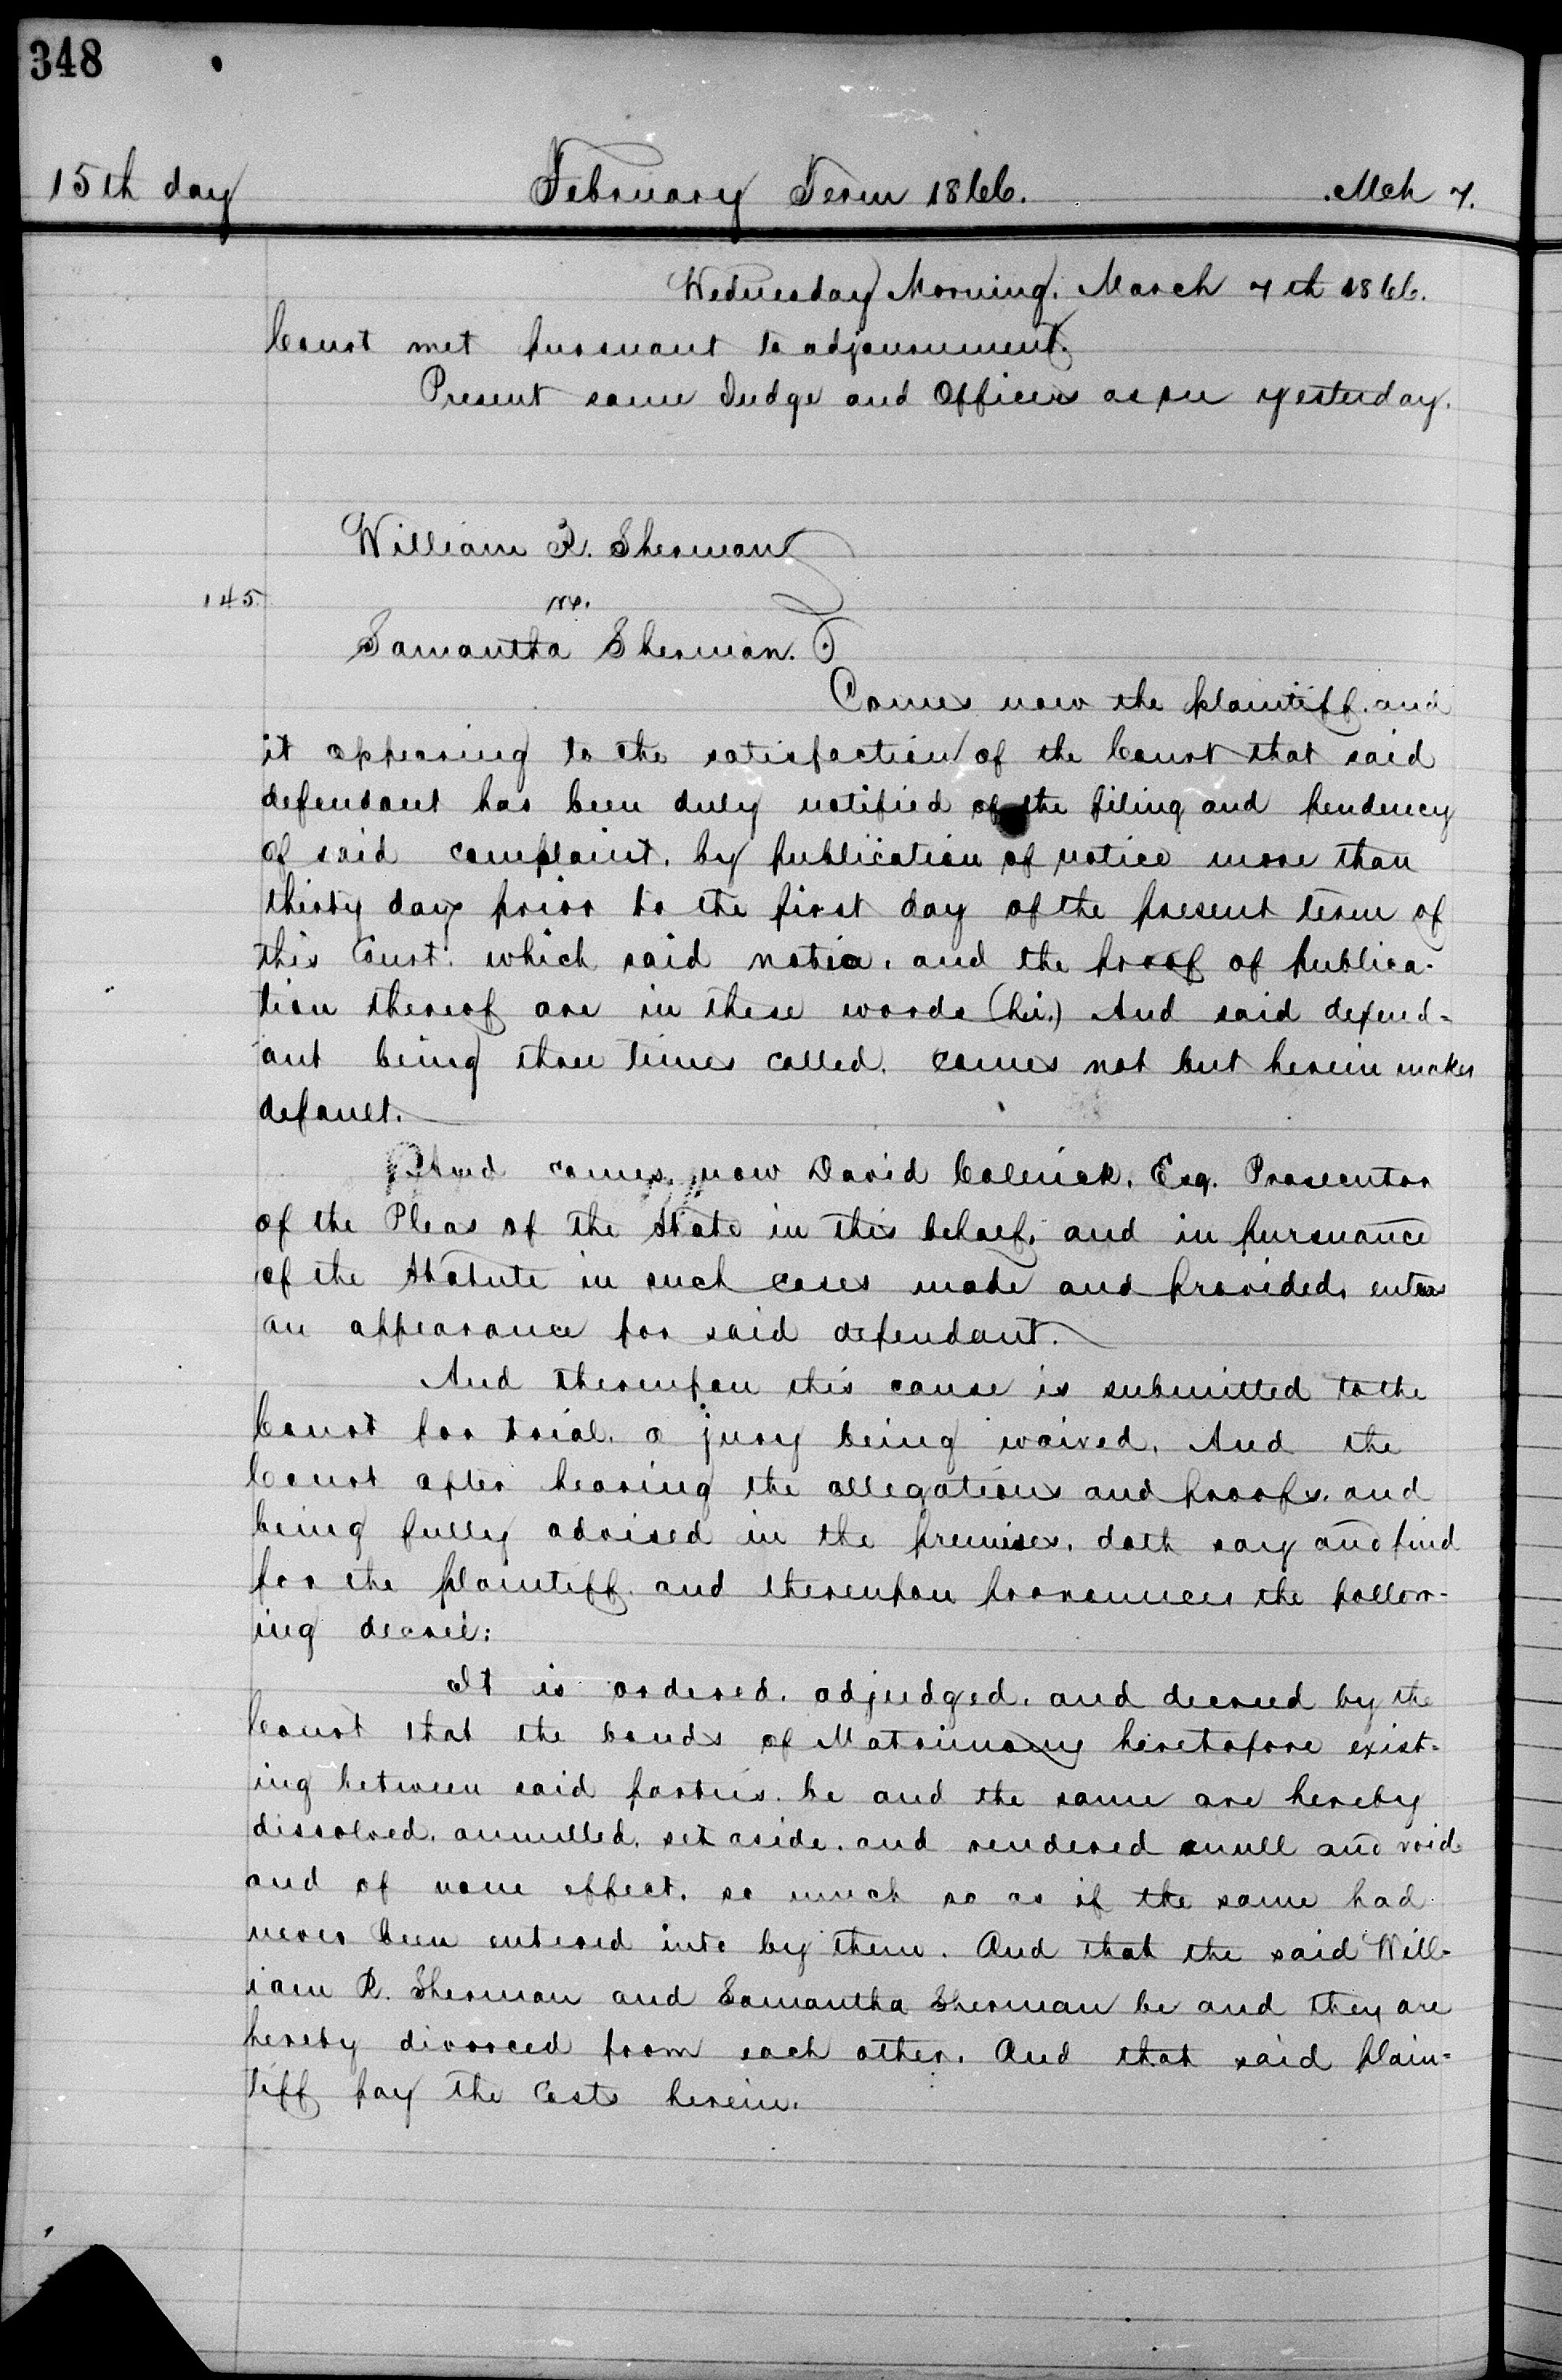 348
15th day February Term 1866. Mch 7.
Wednesday Morning. March 7th 1866.
Court met pursuant to adjournment.
Present same Judge and Officers as on yesterday.
William R. Sherman
145. vs.
Samantha Sherman.
Comes now the plaintiff. and
it appearing to the satisfaction of the Court that said
defendant has been duly notified of the filing and pendency
of said complaint. by publication of notice more than
thirty days prior to the first day of the present term of
this Court. which said notice. and the proof of publica-
tion thereof are in these words (h.i.) And said defend-
ant being three times called. comes not but herein makes
default.
And comes now David Colerick. Esq. Prosecutor
of the Pleas of the State in this behalf. and in pursuance
of the Statute in such cases made and provided, enters
an appearance for said defendant.
And thereupon this cause is submitted to the
Court for trial. a jury being waived. And the
Court after hearing the allegations and proofs. and
being fully advised in the premises. doth say and find
for the plaintiff. and thereupon pronounces the follow-
ing decree:
It is ordered. adjudged. and decreed by the
Court that the bonds of Matrimony heretofore exist-
ing between said parties. be and the same are hereby
dissolved. annulled. set aside. and rendered null and void
and of none effect. so much so as if the same had
never been entered into by them. And that the said Will-
iam R. Sherman and Samantha Sherman be and they are
hereby divorced from each other. And that said plain-
tiff pay the Costs herein.